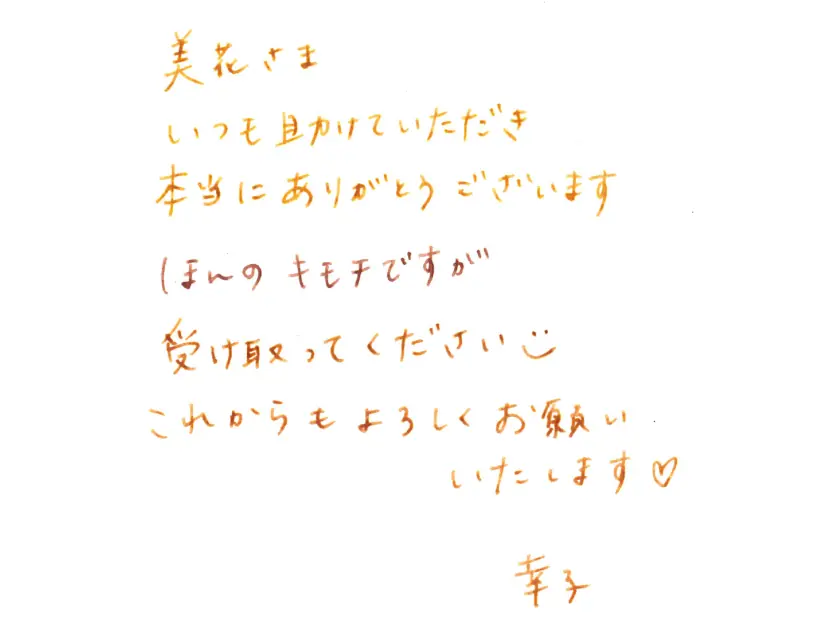 美花さま
いつも助けていただき
本当にありがとうございます
ほんのキモチですが
受け取ってください
これからもよろしくお願い
いたします♡
幸子